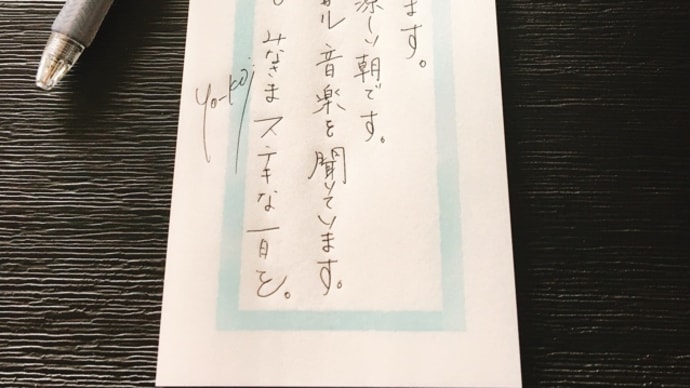 ます。
涼しい朝です。
ル 音楽を聞いています。
みなさまステキな一日を。
yo-koj